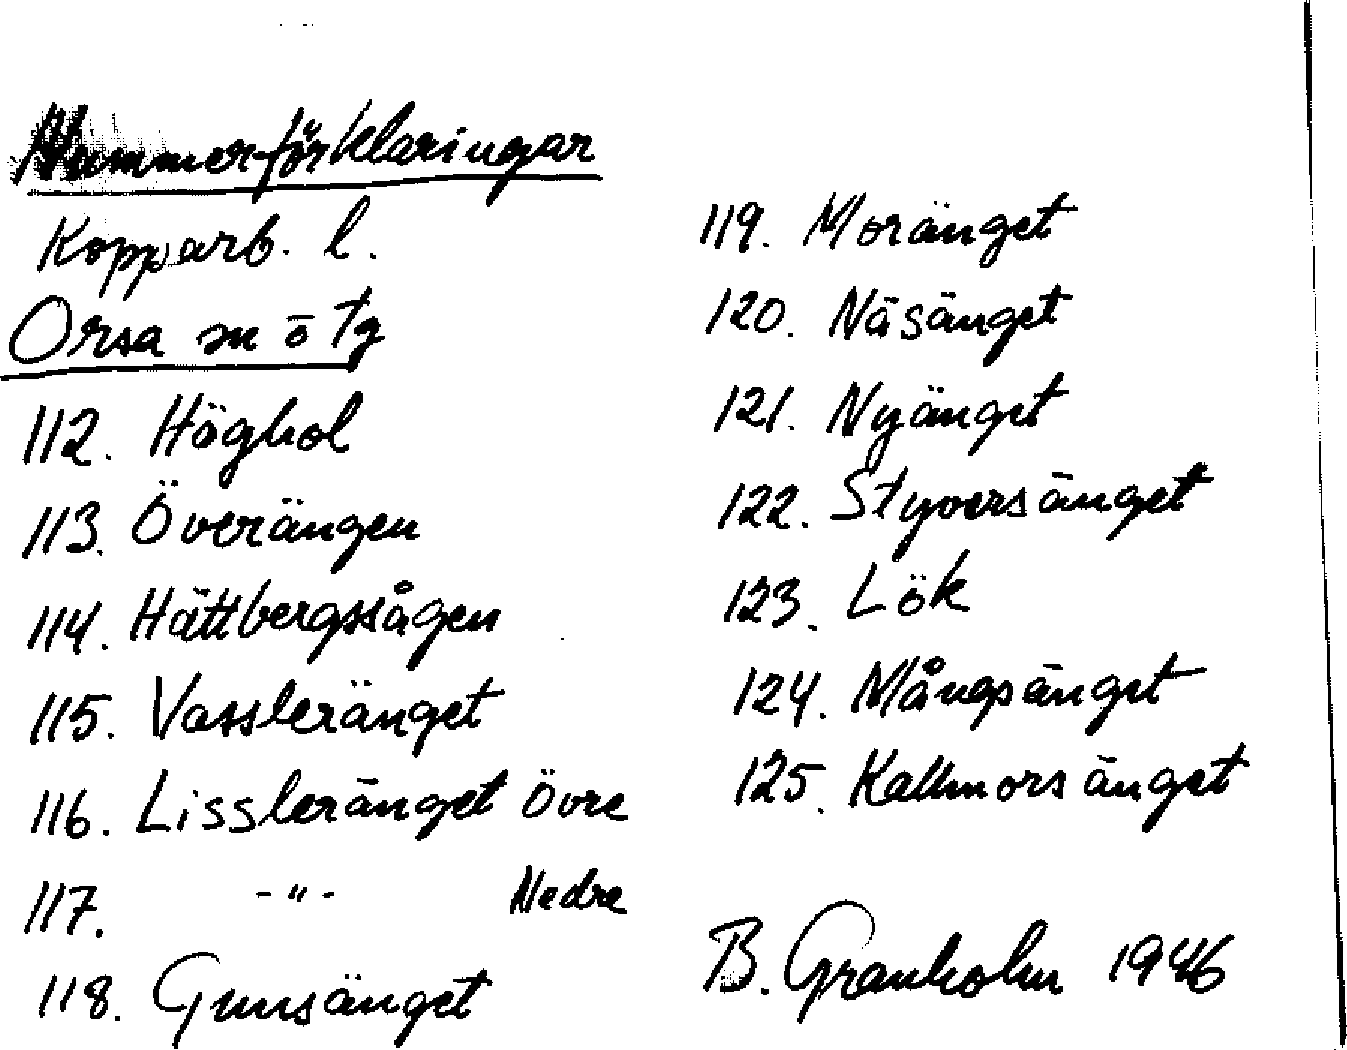 Nummerförklaringar
Kopparb. l.
Orsa sn ö tg
112. Höghol
113. Överängen
114. Hättbergssågen
115. Vassleränget
116. Lissleränget Övre
117. -"- Nedre
118. Gunsänget
119. Moränget
120. Näsänget
121. Nyänget
122. Styversänget
123. Lök
124. Mångsänget
125. Kallmorsänget
B. Granholm 1946